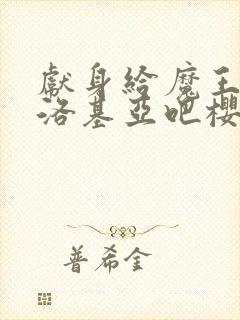 獻身給魔王
洛基亞吧櫻
普希金